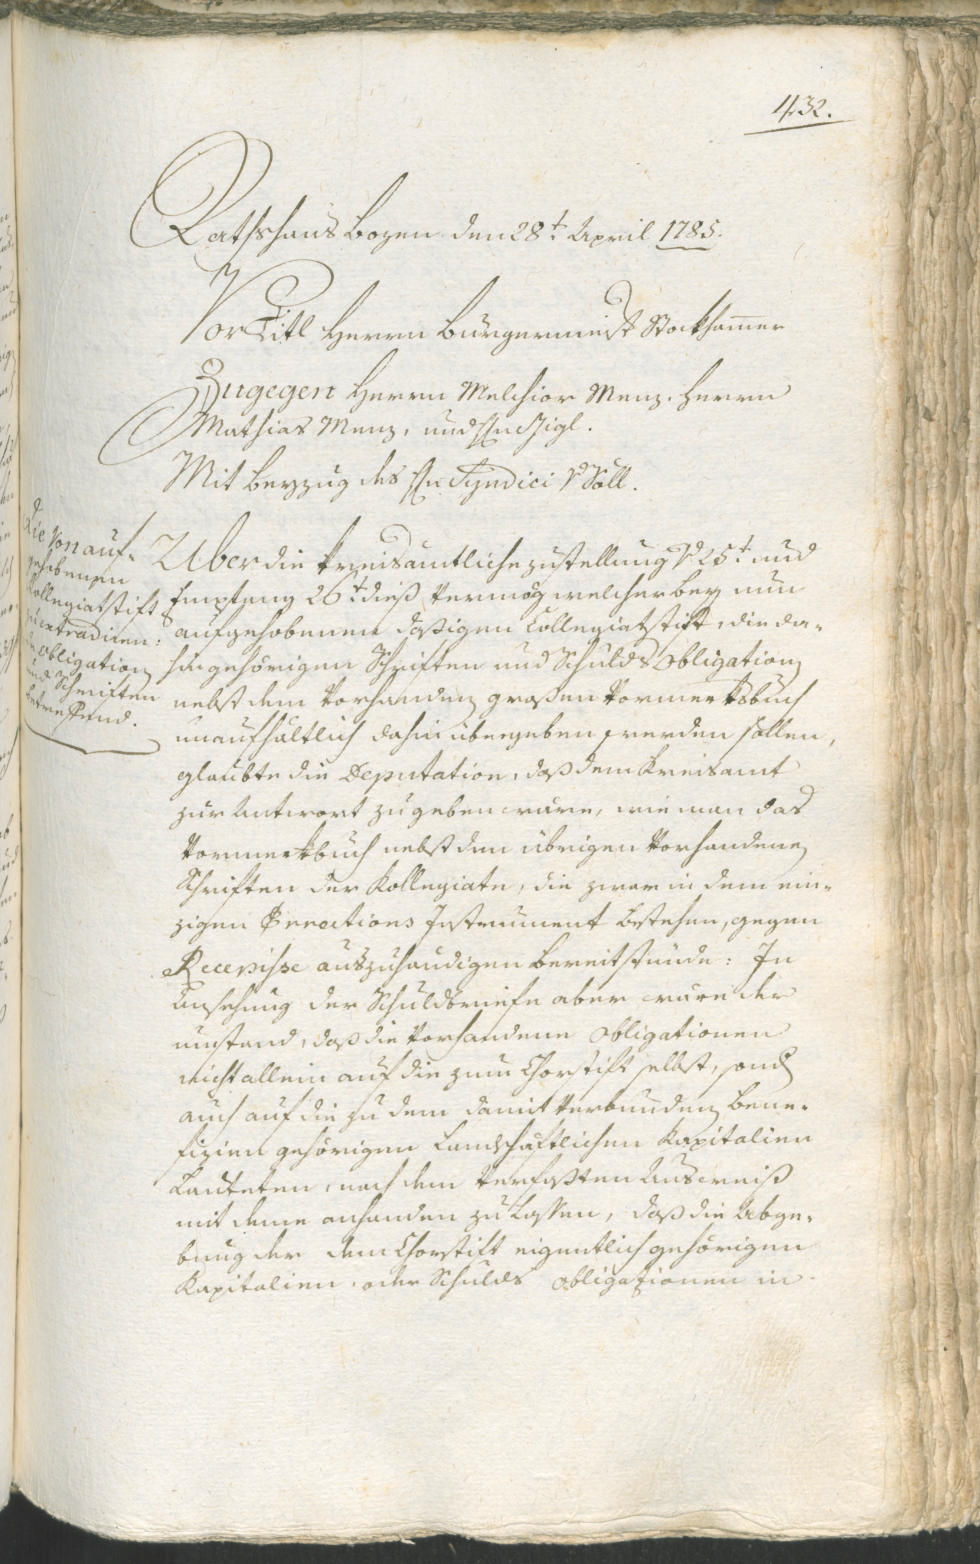 432.
Rathshaus Bozen den 28t. April 1785.
Vor Titl Herrn Burgermeist Stockhammer
Zugegen Herrn Melchior Menz. Herrn
Mathias Menz, und Hn Zigl.
Mit Beyzug des Hn Syndici Dr Söll.
Die Von auf-
gehobenen
Kollegiatstift
zu extradiren:
de Obligation
und Schriften
betreffend.
Uber die kreisämtliche zustellung dd 25t und
Empfang 26t dieß vermög welcher bey nun
aufgehobenem dasigen Collegiatstift, die da-
hin gehörigen Schriften und Schulds Obligation
nebst dem vorhanden großen Vormerksbuch
unaufhältlich dahin übergeben werden sollen,
glaubte die Deputation, daß dem Kreisamt
zur Antwort zu geben wäre, wie man das
Vormerkbuch nebst den übrigen vorhandenen
Schriften der Kollegiate, die zwar in dem ein-
zigen Erections Instrument bestehen, gegen
Recepisse auszuhändigen bereit stünde: In
Ansehung der Schuldbriefe aber wäre der
umstand, daß die vorhandene Obligationen
nicht allein auf die zum Chorstift selbst, sond
auch auf die zu dem damit verbunden Bene-
fizien gehörigen Landschäftlichen Kapitalien
Lauteten, nach dem verfaßten Ausweiß
mit deme anhanden zu lassen, daß die Abge-
bung der dem Chorstift eigentlich gehörigen
Kapitalien oder Schulds Obligationen in